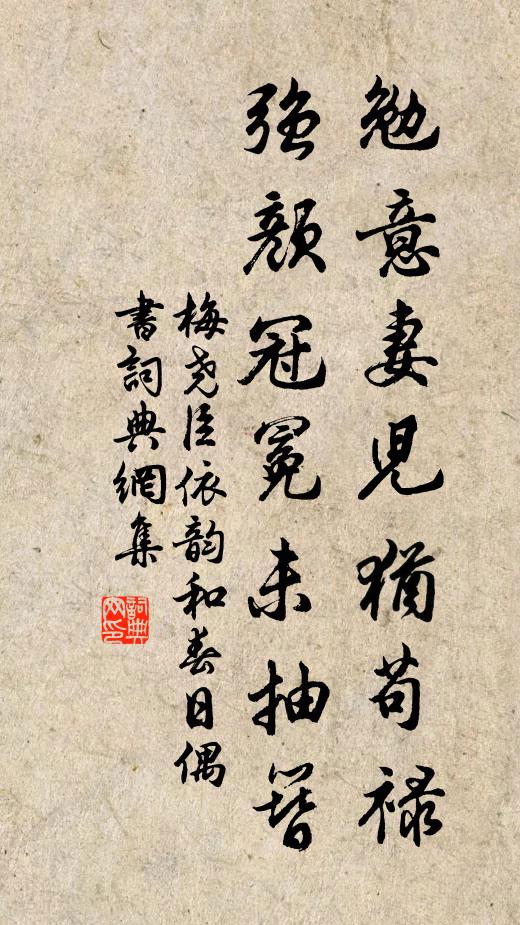 勉意妻兒猶苟祿
強顏冠冕未抽簪
梅堯臣依韵和春日偶
書詞典網集
詞典
网印